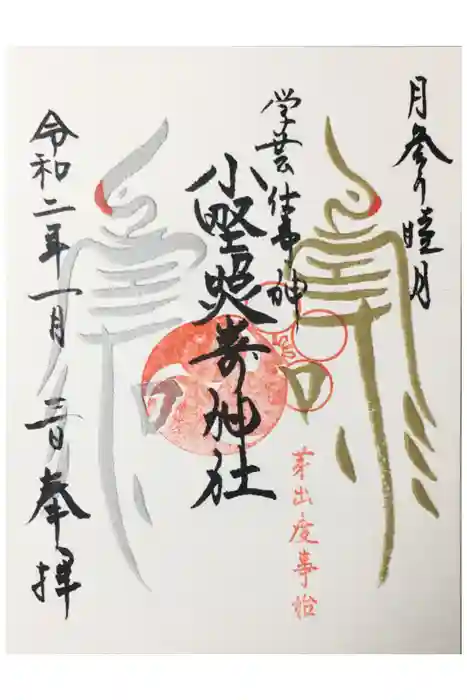 月参り睦月
学芸仕事ノ神
小野照嵜神社
芽出度事始
令和二年一月三日奉拝